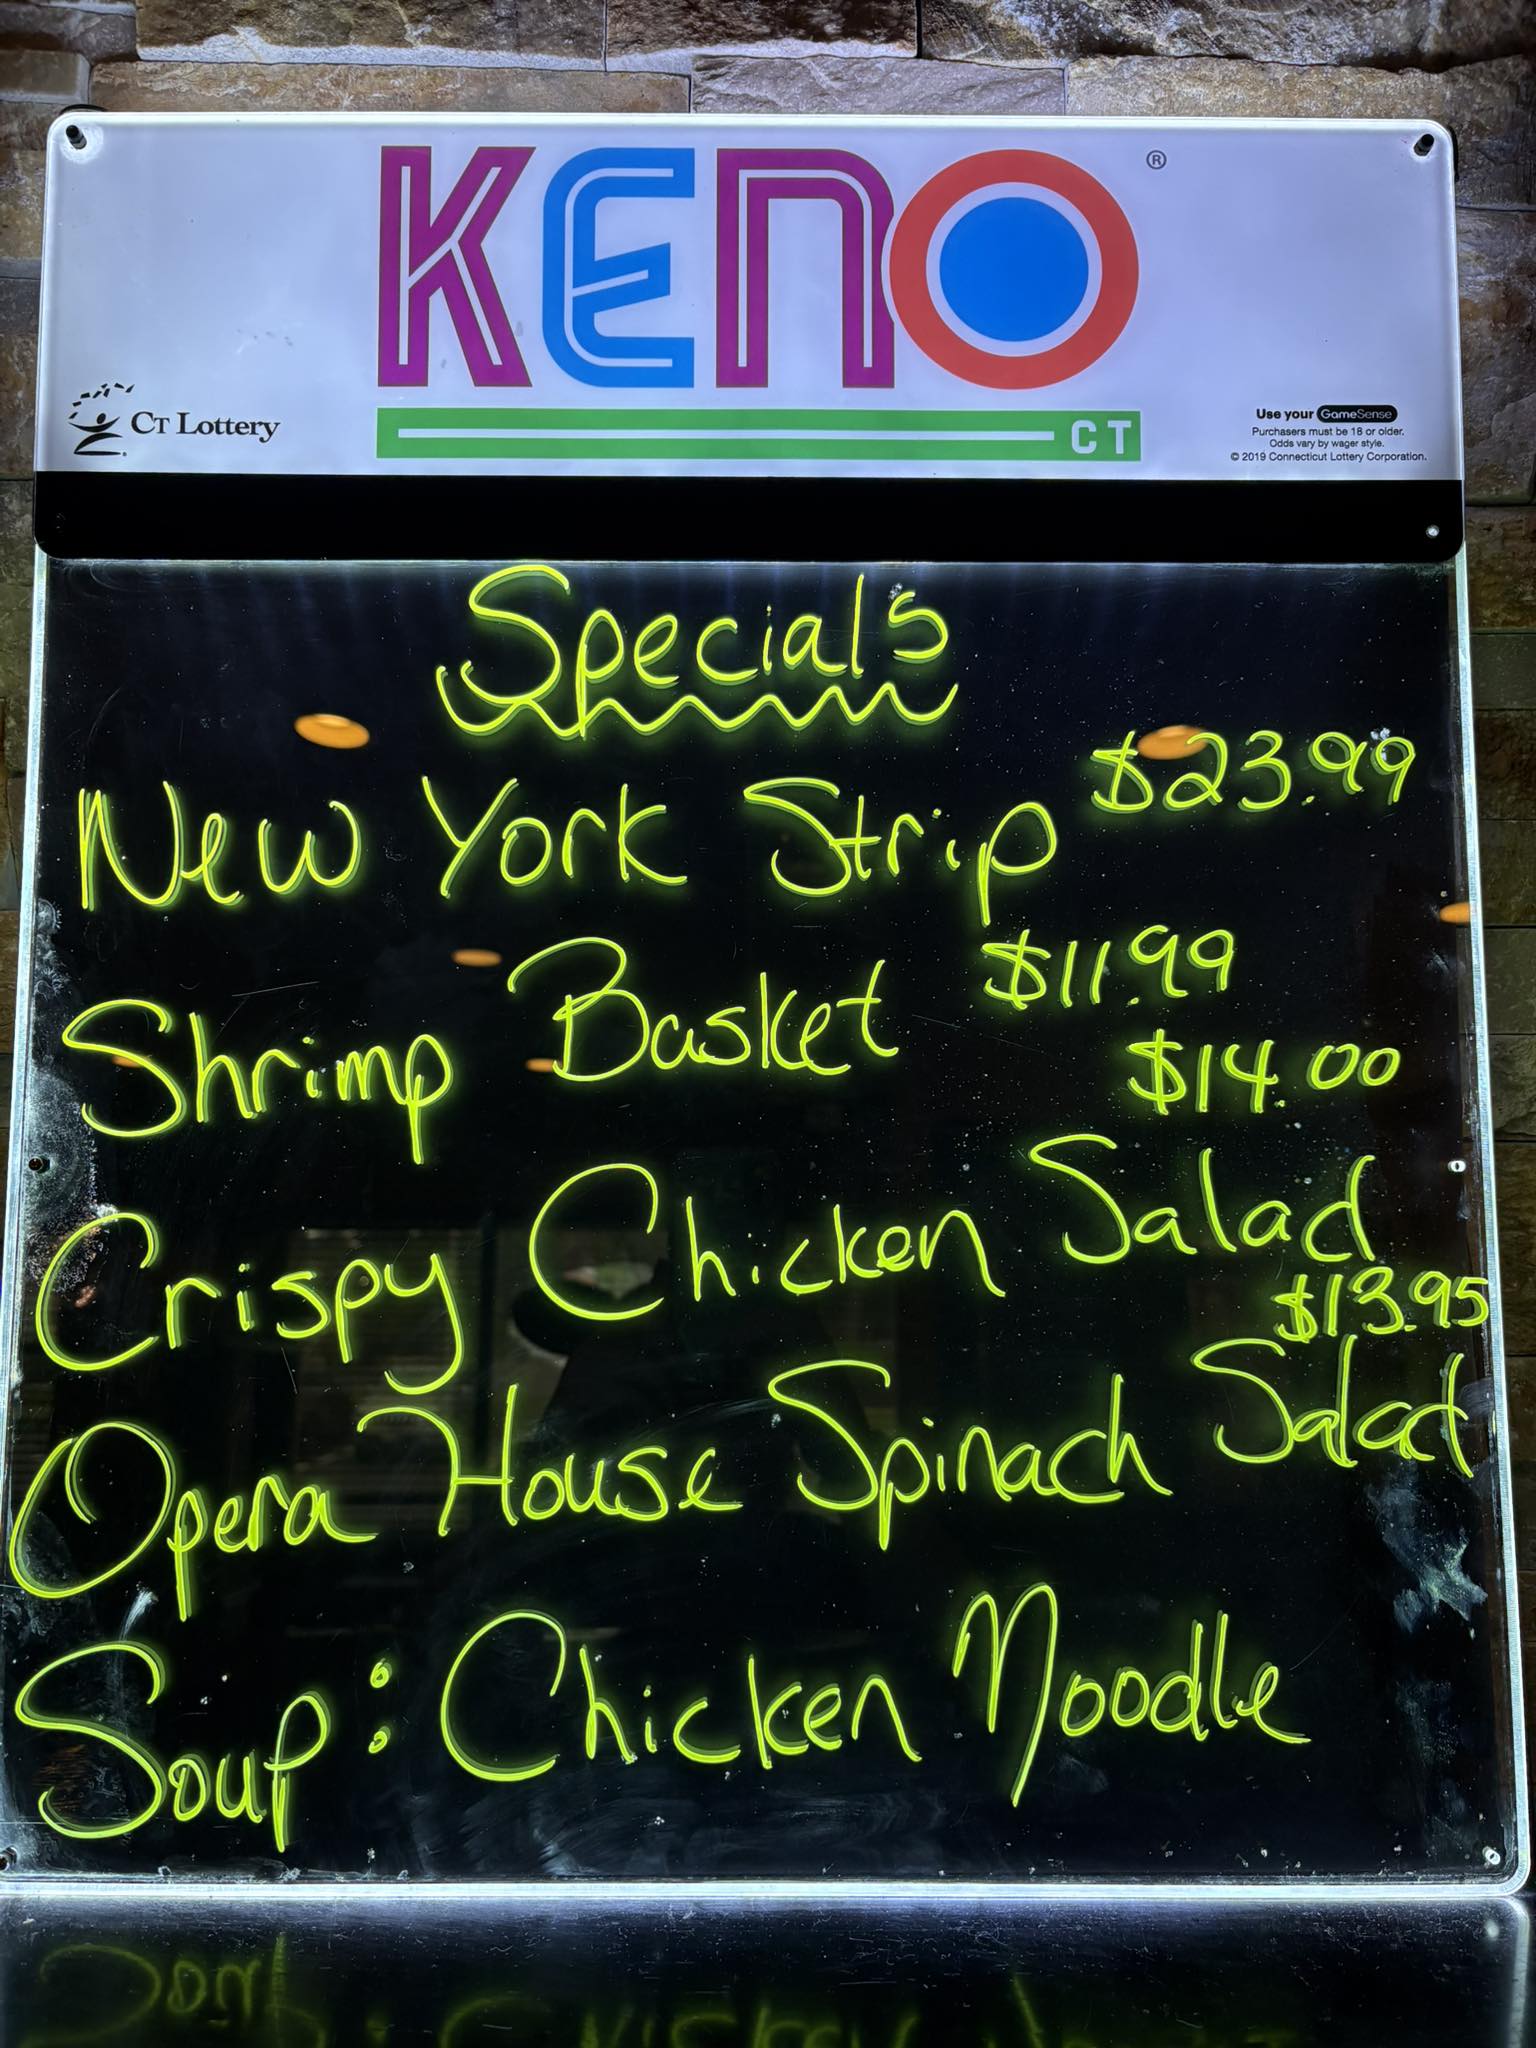 KENO®
CT Lottery
CT
Use your GameSense
Purchasers must be 18 or older.
Odds vary by wager style.
© 2019 Connecticut Lottery Corporation.
Specials
New York Strip $23.99
Shrimp Basket $11.99
Crispy Chicken Salad $14.00
Opera House Spinach Salad $13.95
Soup: Chicken Noodle